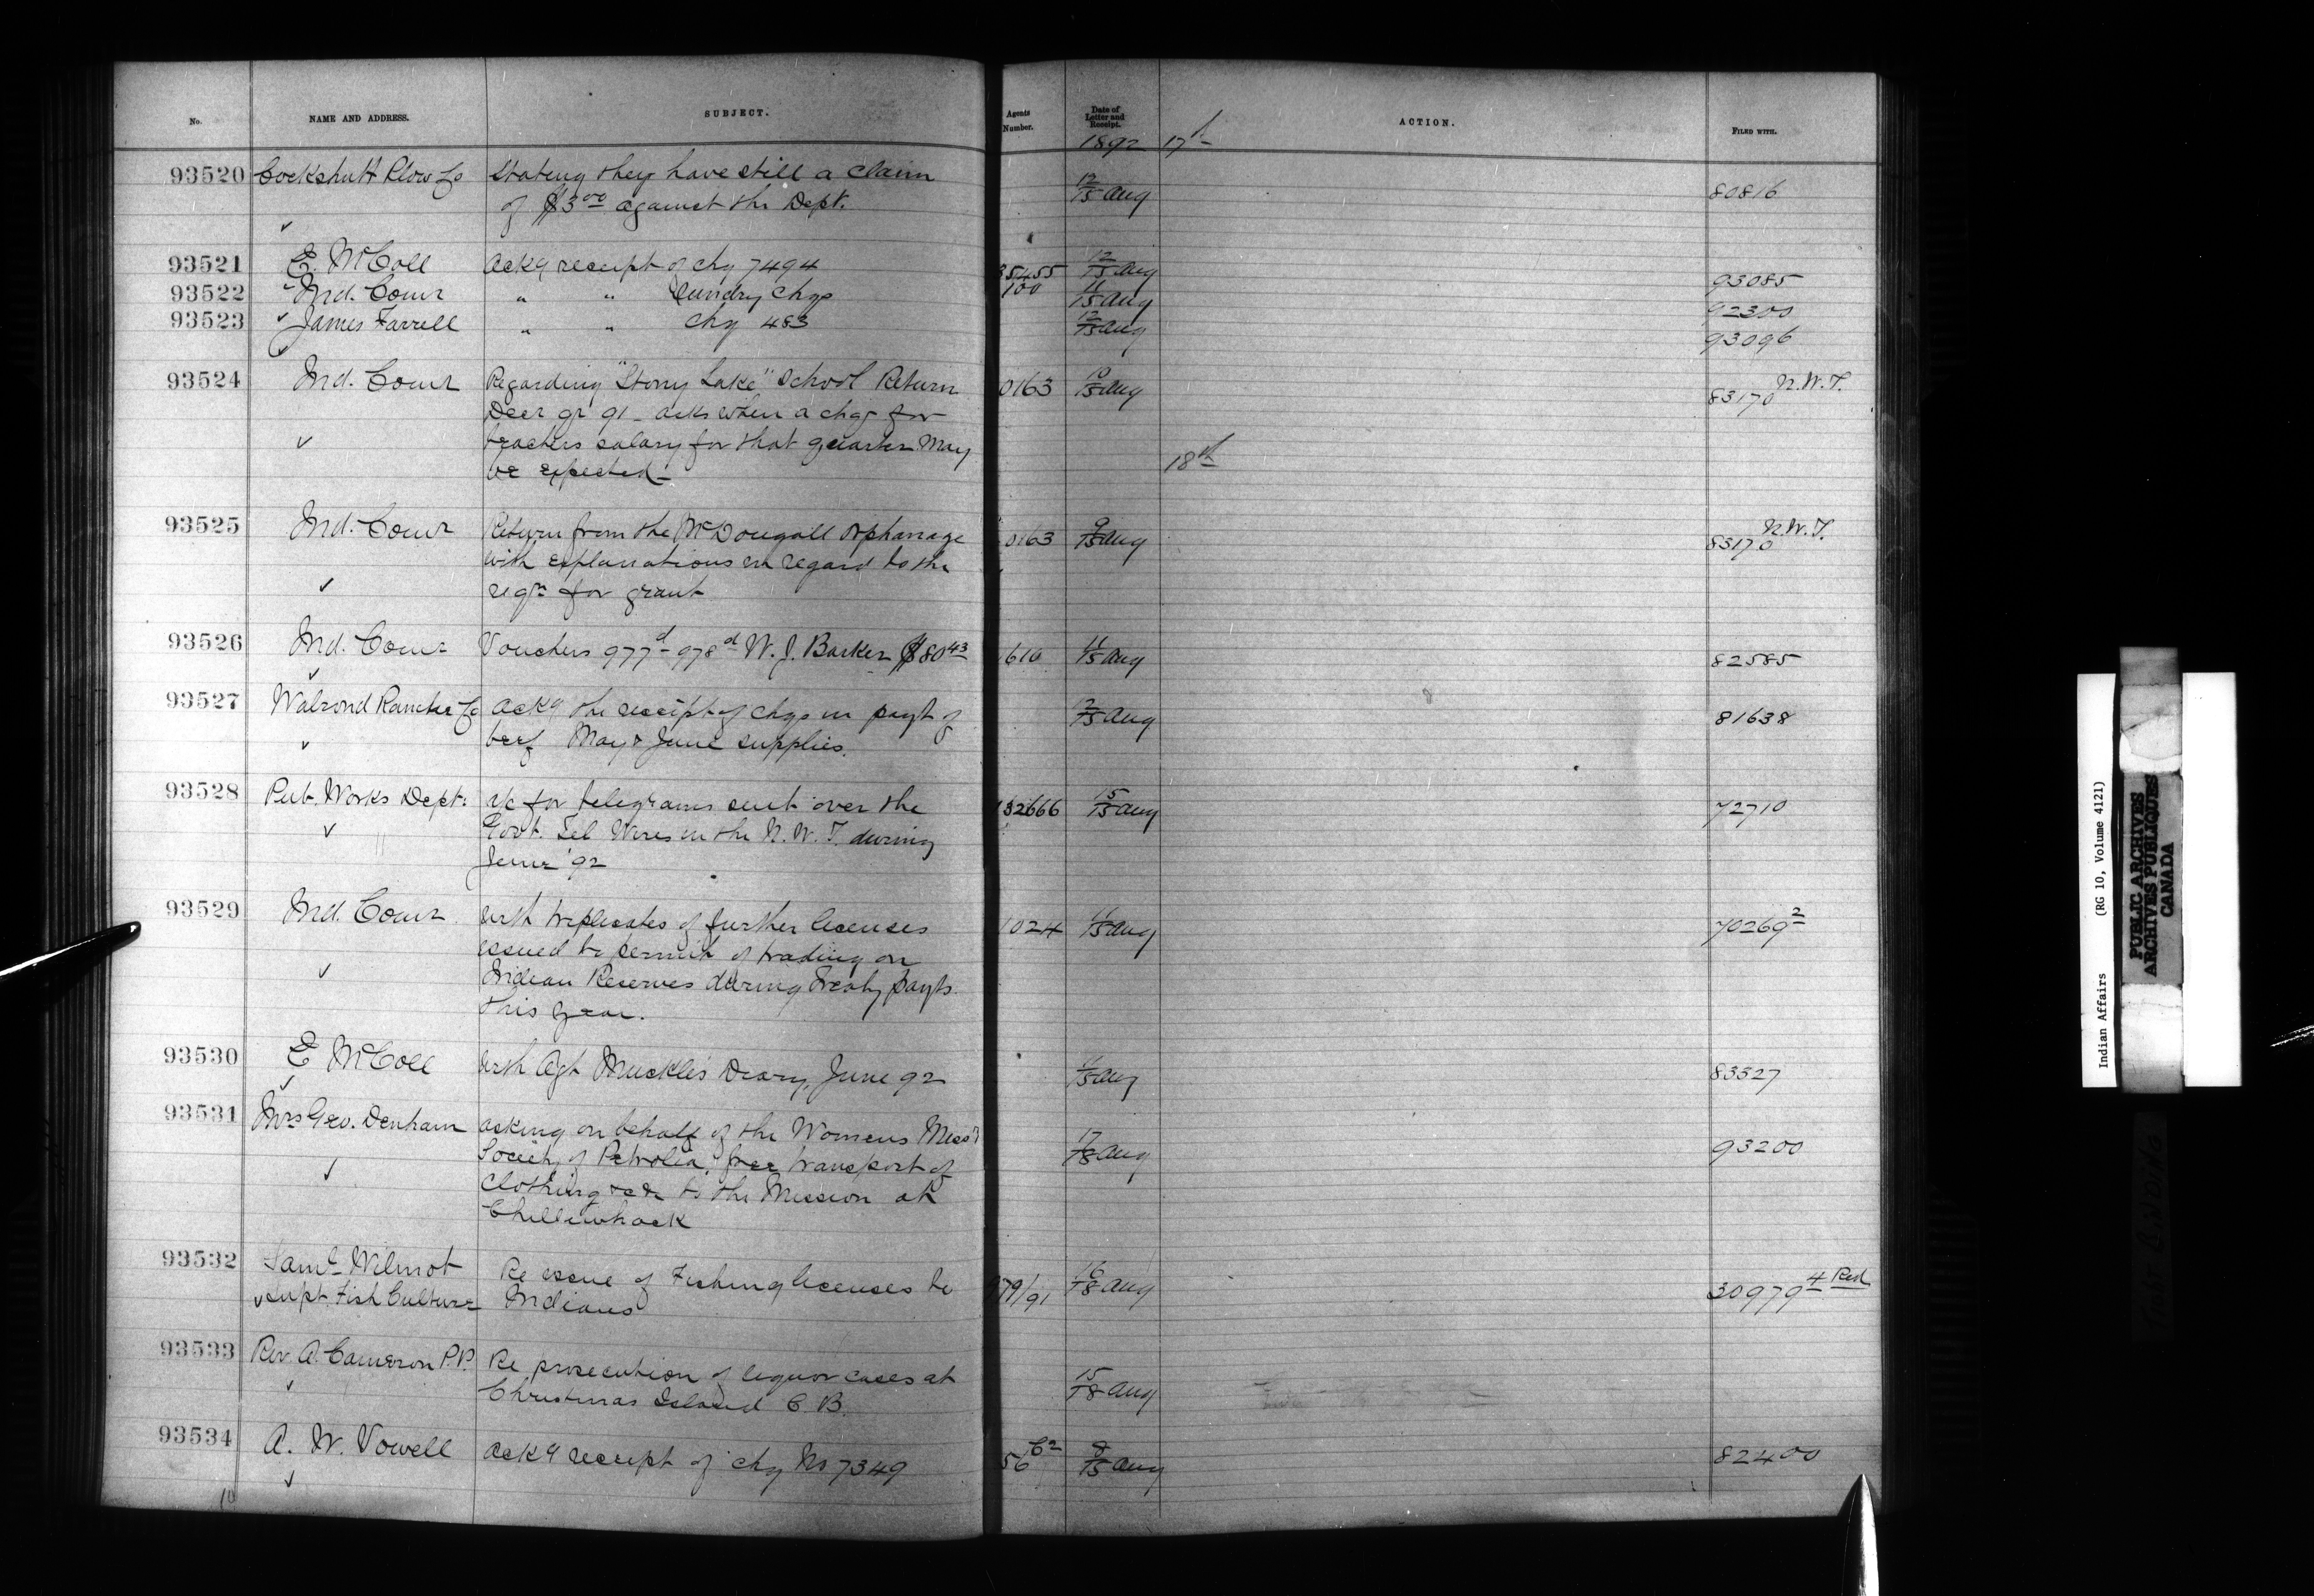 No. NAME AND ADDRESS. SUBJECT. Agents Number. Date of Letter and Receipt. ACTION. FILED WITH.
1892 17th
93520 Cockshutt Plow Co Stating they have still a claim 12/15 Aug 80816
of $3.00 against the Dept.
93521 E. McColl Ackg receipt of chq 7494 35455 12/15 Aug 93085
93522 Ind. Comr " " Sundry chqs 100 11/15 Aug 92300
93523 James Farrell " " chq 483 12/15 Aug 93096
93524 Ind. Comr Regarding "Stony Lake" School Return 0163 10/15 Aug 83170 N.W.T.
Decr qr 91 - asks when a chq for
teachers salary for that quarter may
be expected -
18th
93525 Ind. Comr Return from the McDougall Orphanage 0163 9/15 Aug 83170 N.W.T.
with explanations in regard to the
reqn for grant
93526 Ind. Comr Vouchers 977d - 978d W. J. Barker $80.43 610 11/15 Aug 82585
93527 Walrond Ranche Co Ackg the receipt of chqs in payt of 12/15 Aug 81638
beef May & June supplies.
93528 Pub. Works Dept. a/c for telegrams sent over the 132666 15/15 Aug 72710
Govt. Tel Wires in the N. W. T. during
June '92
93529 Ind. Comr with triplicates of further licenses 1024 11/15 Aug 70269 2
issued to permit of trading on
Indian Reserves during Treaty payts
this year.
93530 E McColl with Agt Muckle's Diary, June 92 11/15 Aug 83327
93531 Mrs Geo. Denham asking on behalf of the Womens Missy 17/18 Aug 93200
Society of Petrolea, free transport of
clothing &c &c to the Mission at
Chilliwhack
93532 Saml Wilmot Re issue of Fishing licenses to 979/91 16/18 Aug 30979 4 Red
Supt Fish Culture Indians
93533 Rev A. Cameron P.P. Re prosecution of liquor cases at 15/18 Aug
Christmas Island C. B.
93534 A. W. Vowell Ackg receipt of chq No 7349 56 C2 8/15 Aug 82400
10
Indian Affairs (RG 10, Volume 4121)
PUBLIC ARCHIVES
ARCHIVES PUBLIQUES
CANADA